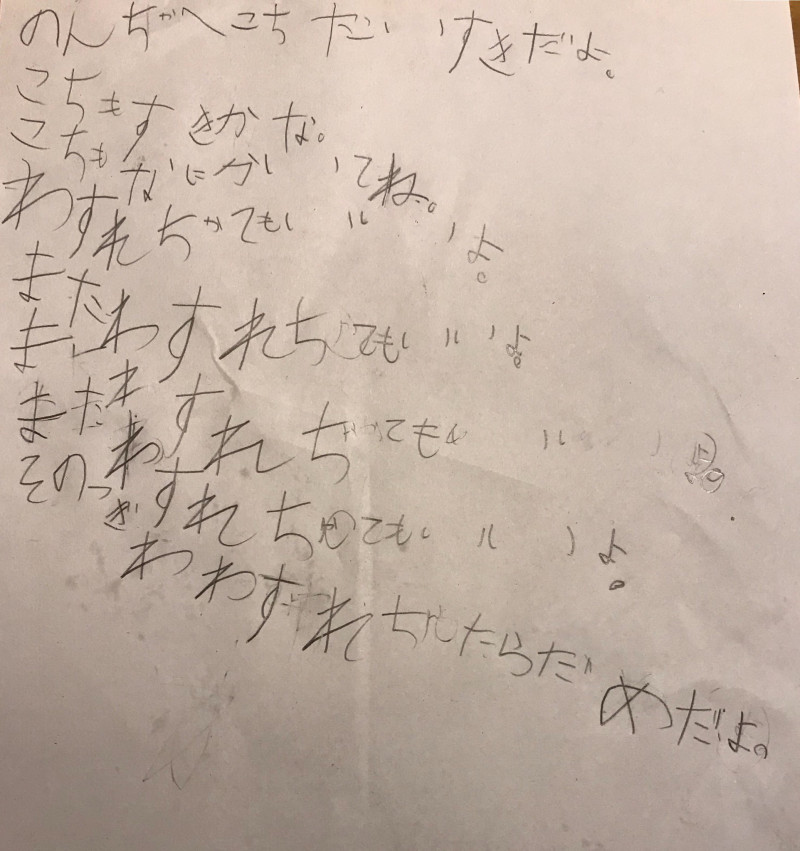 のんぢゃへこち だい すきだよ。
こちもすきかな。
こちもなにかいてね。
わすれちゃてもいいよ。
またわすれちゃてもいいよ。
またわすれぢゃてもいいよ。
まだわすれちゃてもいいよ。
そのつぎわわすれちゃたらだめだよ。